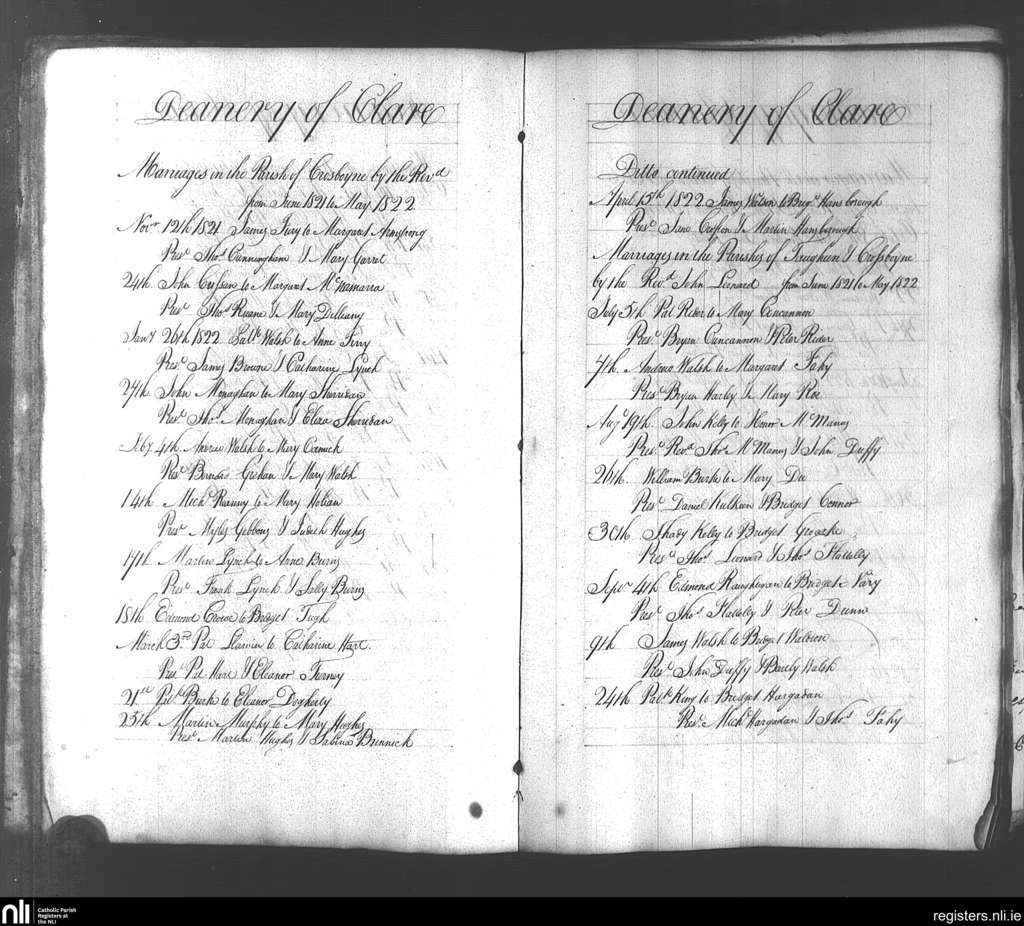 Deanery of Clare
Marriages in the Parish of Crosboyne by the Revd
from June 1821 to May 1822
Novr 12th 1821 James Fury to Margaret Armstrong
Prest Thos Cunningham & Mary Garret
24th John Crissian to Margaret McNamarra
Prest Thos Ruane & Mary Delleany
Jany 26th 1822 Patk Walsh to Anne Firry
Prest James Browne & Catharine Lynch
27th John Monaghan to Mary Sherridan
Prest Thos Monaghan & Eliza Sherridan
Feby 4th Andrew Walsh to Mary Cormick
Prest Bernard & Mary Walsh
14th Michl to Mary Nolean
Prest Myles Gibbons & Judith Hughes
17th Martin Lynch to Anne Burns
Prest Frank Lynch & Sally Burns
18th Edmond Crowe to Bridget Tigh
March 3rd Pat to Catharine Hart.
Prest Pat Hart & Eleanor
21st Patk Burke to Eleanor Dogherty
25th Martin Murphy to Mary Hughes
Prest Martin Hughes & Sabina Brennick
Deanery of Clare
Ditto continued
April 15th 1822 James Watson to Bridgt Hansborough
Prest Jane Crosson & Martin Hansborough
Marriages in the Parishes of Taugheen & Crossboyne
by the Revd John Leonard from June 1821 to May 1822
July 5th Pat Reder to Mary Concannon
Prest Bryan Cuncannon & Peter Reder
7th Andrew Walsh to Margaret Fahy
Prest Bryan Harley & Mary Roe
Augt 19th John Kelly to Honor McManus
Prest Revd Thos McManus & John Duffy
26th William Burke to Mary Dee
Prest Daniel & Bridget Connor
30th Thady Kelly to Bridget Groarke
Prest Thos Leonard & Thos Flattelly
Sepr 4th Edmond to Bridget Vary
Prest Thos Flattelly & Peter Dunne
9th James Walsh to Bridget Waldron
Prest John Duffy & Bartly Walsh
24th Patk King to Bridget Hargadan
Prest Michl Hargadan & Thos Fahy
nli
Catholic Parish
Registers at
the NLI
registers.nli.ie